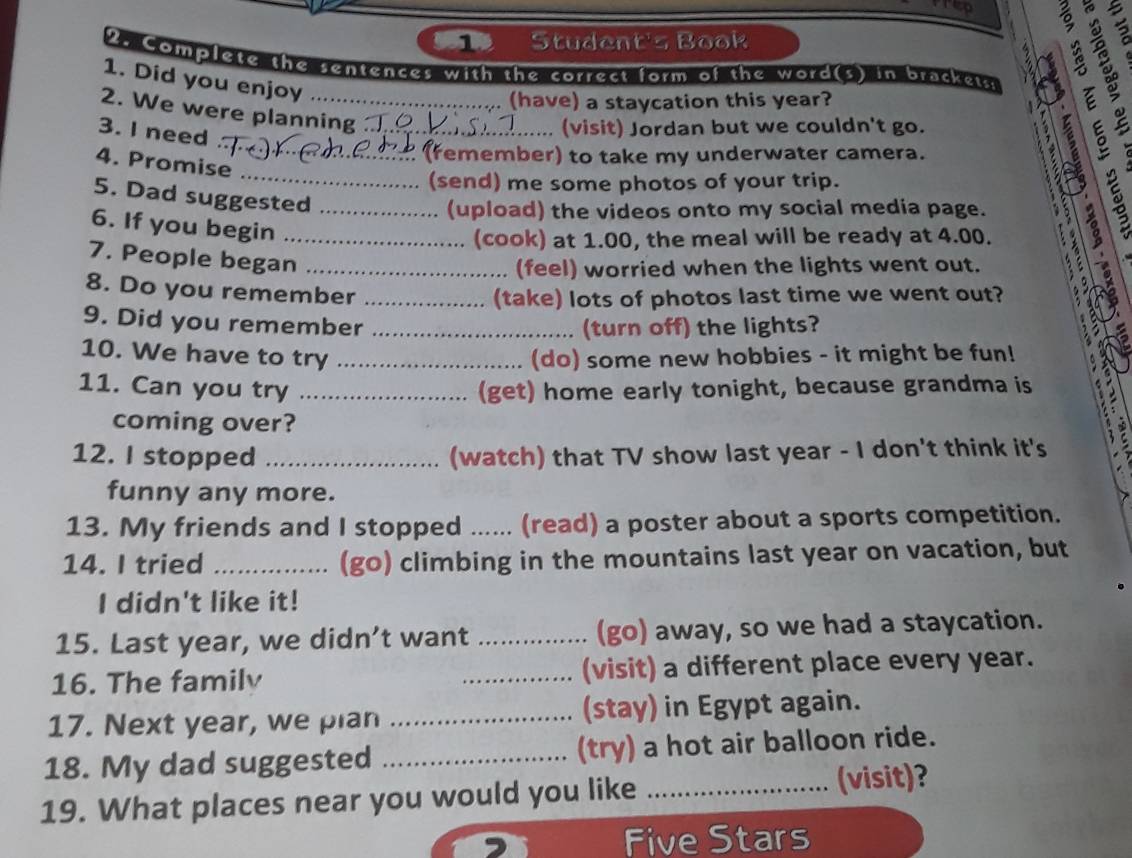 1 Student's Book
2. Complete the sentences with the correct form of the word(s) in brackets:
1. Did you enjoy .............................. (have) a staycation this year?
2. We were planning To Visit (visit) Jordan but we couldn't go.
3. I need To remember (remember) to take my underwater camera.
4. Promise .............................. (send) me some photos of your trip.
5. Dad suggested .................... (upload) the videos onto my social media page.
6. If you begin .............................. (cook) at 1.00, the meal will be ready at 4.00.
7. People began .............................. (feel) worried when the lights went out.
8. Do you remember .................... (take) lots of photos last time we went out?
9. Did you remember .............................. (turn off) the lights?
10. We have to try .............................. (do) some new hobbies - it might be fun!
11. Can you try .......................... (get) home early tonight, because grandma is
coming over?
12. I stopped .......................... (watch) that TV show last year - I don't think it's
funny any more.
13. My friends and I stopped ...... (read) a poster about a sports competition.
14. I tried ............... (go) climbing in the mountains last year on vacation, but
I didn't like it!
15. Last year, we didn't want .............. (go) away, so we had a staycation.
16. The family .............. (visit) a different place every year.
17. Next year, we plan ........................ (stay) in Egypt again.
18. My dad suggested ........................ (try) a hot air balloon ride.
19. What places near you would you like ........................ (visit)?
2 Five Stars
students from my class